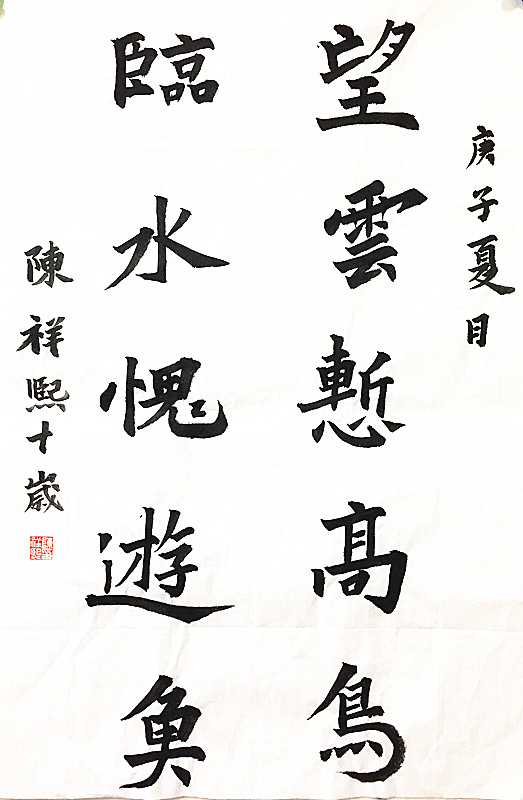 庚子夏月
望雲慙髙鳥
臨水愧遊魚
陳祥熙十歲